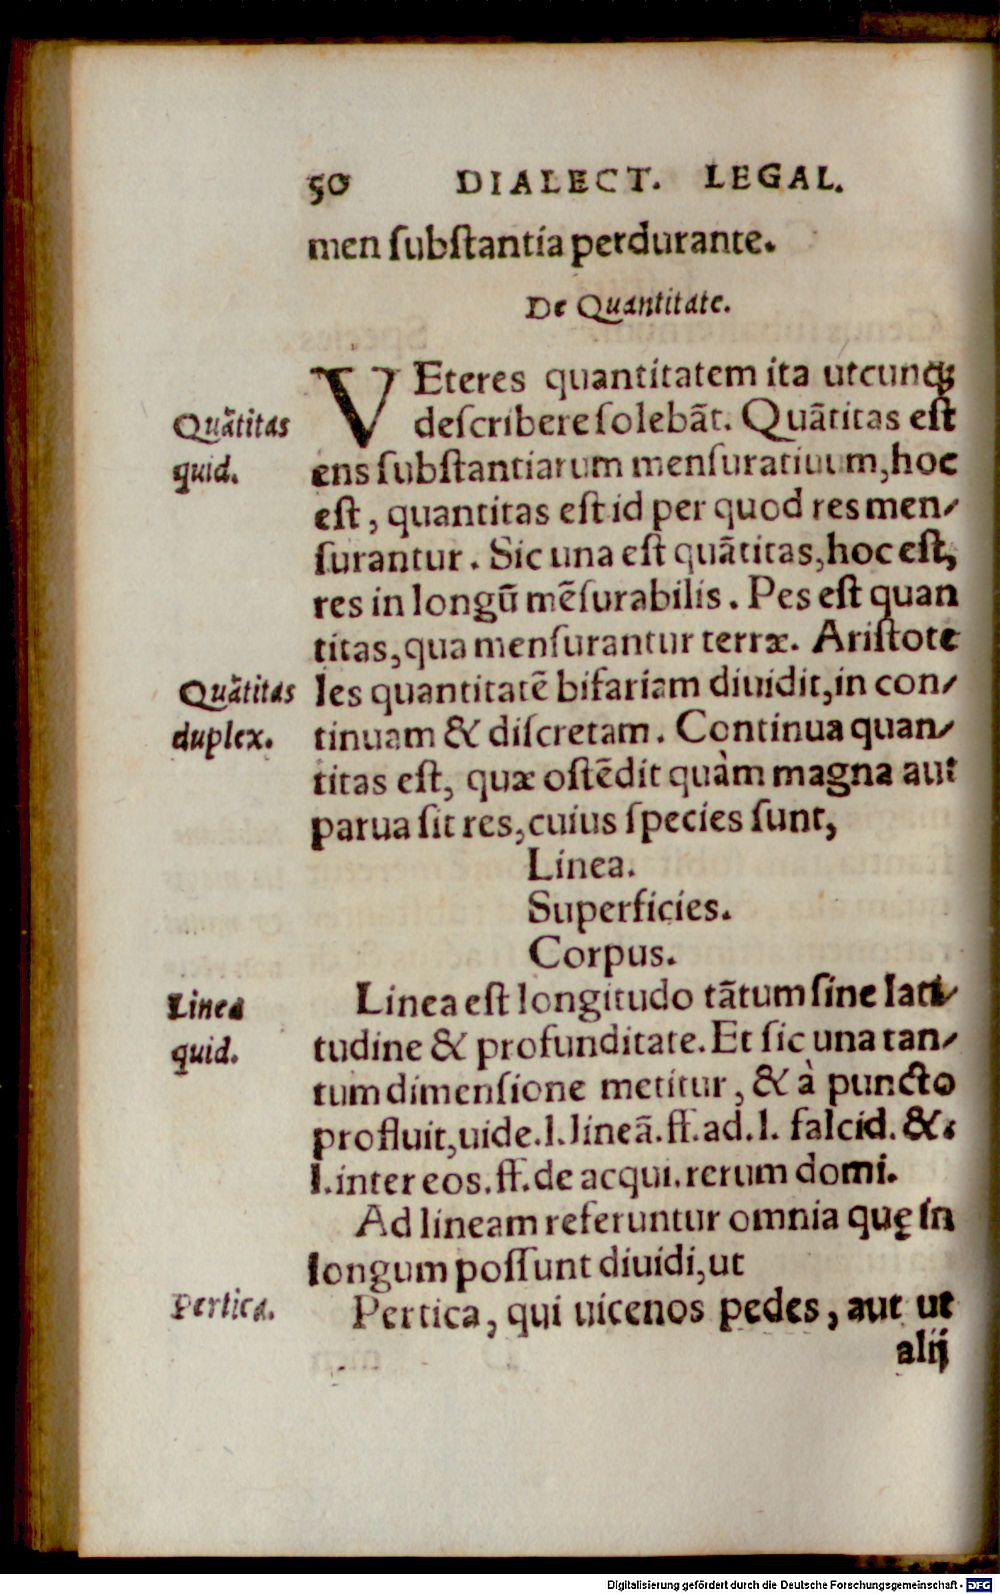 50 DIALECT. LEGAL.
men ſubſtantia perdurante.
De Quantitate.
VEteres quantitatem ita utcunqꝫ
Quātitas
deſcribere ſolebāt. Quātitas eſt
quid.
ens ſubſtantiarum menſuratiuum, hoc
eſt, quantitas eſt id per quod res men-
ſurantur. Sic una eſt quātitas, hoc eſt,
res in longū mēſurabilis. Pes eſt quan
titas, qua menſurantur terræ. Ariſtote
Quātitas
les quantitatē bifariam diuidit, in con-
duplex.
tinuam & diſcretam. Continua quan-
titas eſt, quæ oſtēdit quàm magna aut
parua ſit res, cuius ſpecies ſunt,
Linea.
Superficies.
Corpus.
Linea
Linea eſt longitudo tātum ſine lati-
quid.
tudine & profunditate. Et ſic una tan-
tum dimenſione metitur, & à puncto
profluit, uide. l. lineā. ff. ad. l. falcid. &.
l. inter eos. ff. de acqui. rerum domi.
Ad lineam referuntur omnia quę in
longum poſſunt diuidi, ut
Pertica.
Pertica, qui uicenos pedes, aut ut
alij
Digitalisierung gefördert durch die Deutsche Forschungsgemeinschaft - DFG